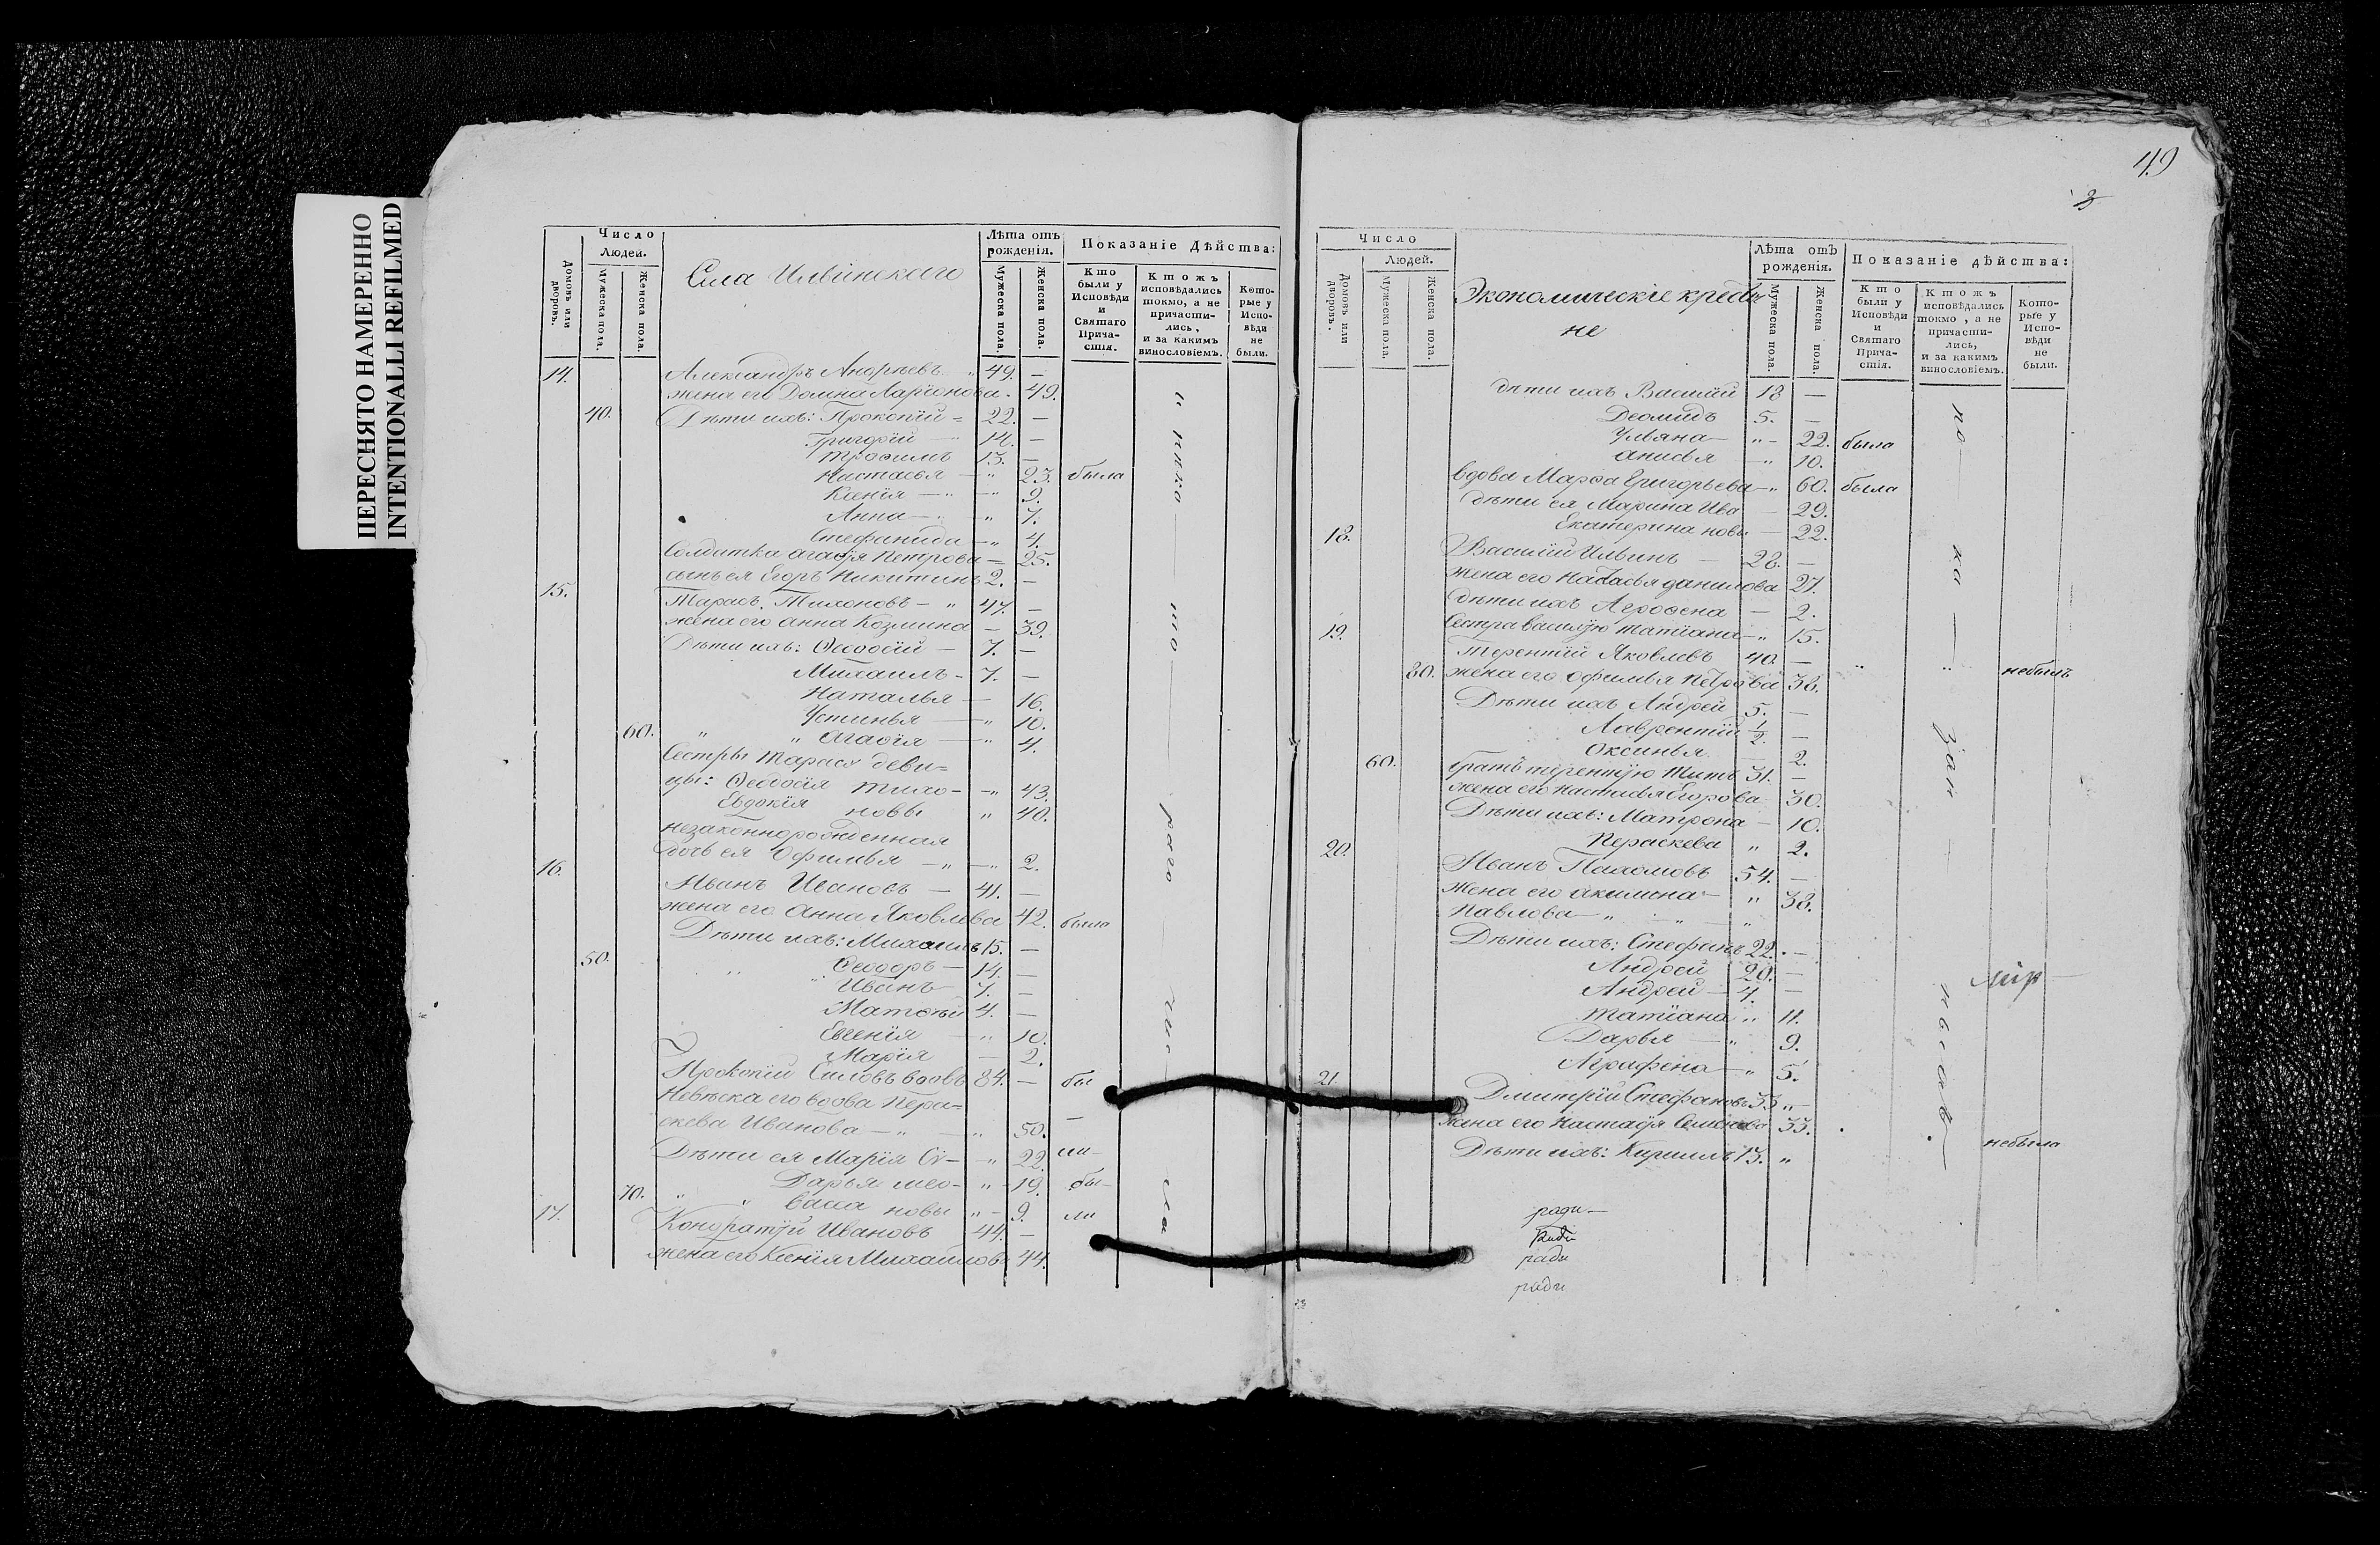 ПЕРЕСНЯТО НАМЕРЕННО
INTENTIONALLI REFILMED
49
Число
Людей.
Домовъ или дворовъ.
Мужеска пола.
Женска пола.
Села Ильинскаго
Лѣта отъ рожденія.
Мужеска пола.
Женска пола.
Показаніе дѣйства:
Кто были у Исповѣди и Святаго Причастія.
Ктожъ исповѣдались токмо, а не причастились, и за какимъ винословіемъ.
Которые у Исповѣди не были.
14. Александръ Андреевъ " 49. —
жена его Домна Ларіонова - 49.
40. Дѣти ихъ: Прокопій = 22. —
Григорій — 14. —
Трофимъ 13. —
Настасья — " 23. была
Ксенія — " — " 9.
Анна — " " 7.
Стефанида — " 4.
Солдатка агафія Петрова — 25.
сынъ ея Егоръ Никитинъ 2. —
15. Тарасъ Тихоновъ — " 47. —
жена его анна Козмина — 39.
Дѣти ихъ: Ѳеодосій — 7. —
Михаилъ - 7. —
Наталья — 16.
Устинья — " 10.
60. " " агафія — " 4.
Сестры Тараса деви=
цы: Ѳеодосія тихо- — " 43.
Евдокія новы " 40.
незаконнорожденная
дочь ея Офимья — " — " 2.
16. Иванъ Ивановъ — 41. —
жена его Анна Яковлева 42. была
Дѣти ихъ: Михаилъ 15. —
50. " Ѳеодоръ — 14. —
" Иванъ — 7. —
Матѳей 4. —
Евгенія — " 10.
Марія — 2.
Прокопій Силовъ вдовъ 84. — бы
Невѣска его вдова Пера=
скева Иванова — " — " 50. —
Дѣти ея Марія Си- — " 22. ли
Дарья мео- " - 19. бы-
70. " " васса новы " - 9. ли
17. Кондратій Ивановъ 44. —
жена его Ксенія Михаилов 44.
Число
Людей.
Домовъ или дворовъ.
Мужеска пола.
Женска пола.
Экономическіе кресть
не
Лѣта отъ рожденія.
Мужеска пола.
Женска пола.
Показаніе дѣйства:
Кто были у Исповѣди и Святаго Причастія.
Ктожъ исповѣдались токмо, а не причастились, и за какимъ винословіемъ.
Которые у Исповѣди не были.
дѣти ихъ Василій 18 —
Деомидъ 5. —
Ульяна — " - 22. была
анисья — " 10.
вдова Марфа Григорьева — " 60. была
дѣти ея Марина Ива — 29.
Екатерина новы — 22.
18. Василій Ильинъ — 28. —
жена его настасья данилова 27.
дѣти ихъ Агрофена — 2.
Сестра василію татіана — " 15.
19. Терентій Яковлевъ 40. — " " небылъ
80. жена его офимья петрова 38.
Дѣти ихъ Андрей 5. —
Лаврентій 1/2. —
Оксинья — 2.
60. братъ терентію титъ 31. —
жена его настасья Егорова 30.
Дѣти ихъ: Матрона — 10.
Пераскева " 2.
20. Иванъ Пахомовъ 54. —
Жена его акилина — " 38.
Павлова — " — "
Дѣти ихъ: Стефанъ 22. —
Андрей 20. —
Андрей — 4. —
татіана " 11.
Дарья — " 9.
Аграфена — " 5.
21. Дмитрій Стефановъ 33 " —
жена его настасія Семенова 33. небыла
Дѣти ихъ: Кирилъ 13. "
ради —
ради
ради